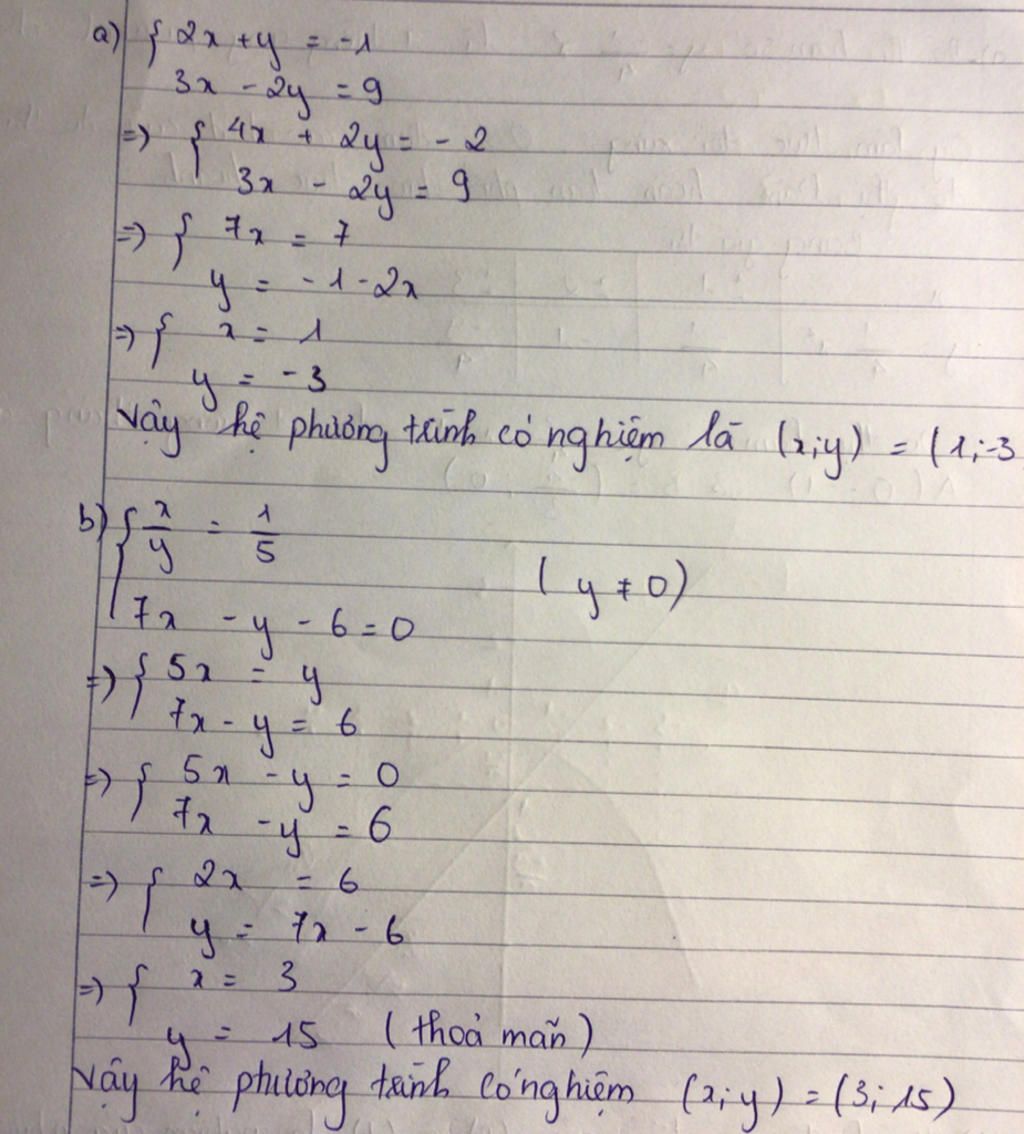 a) { 2x + y = -1
3x - 2y = 9
=> { 4x + 2y = -2
3x - 2y = 9
=> { 7x = 7
y = -1 - 2x
=> { x = 1
y = -3
Vậy hệ phương trình có nghiệm là (x;y) = (1;-3
b) { x/y = 1/5
(y ≠ 0)
7x - y - 6 = 0
=> { 5x = y
7x - y = 6
=> { 5x - y = 0
7x - y = 6
=> { 2x = 6
y = 7x - 6
=> { x = 3
y = 15 (thoả mãn)
Vậy hệ phương trình có nghiệm (x;y) = (3;15)